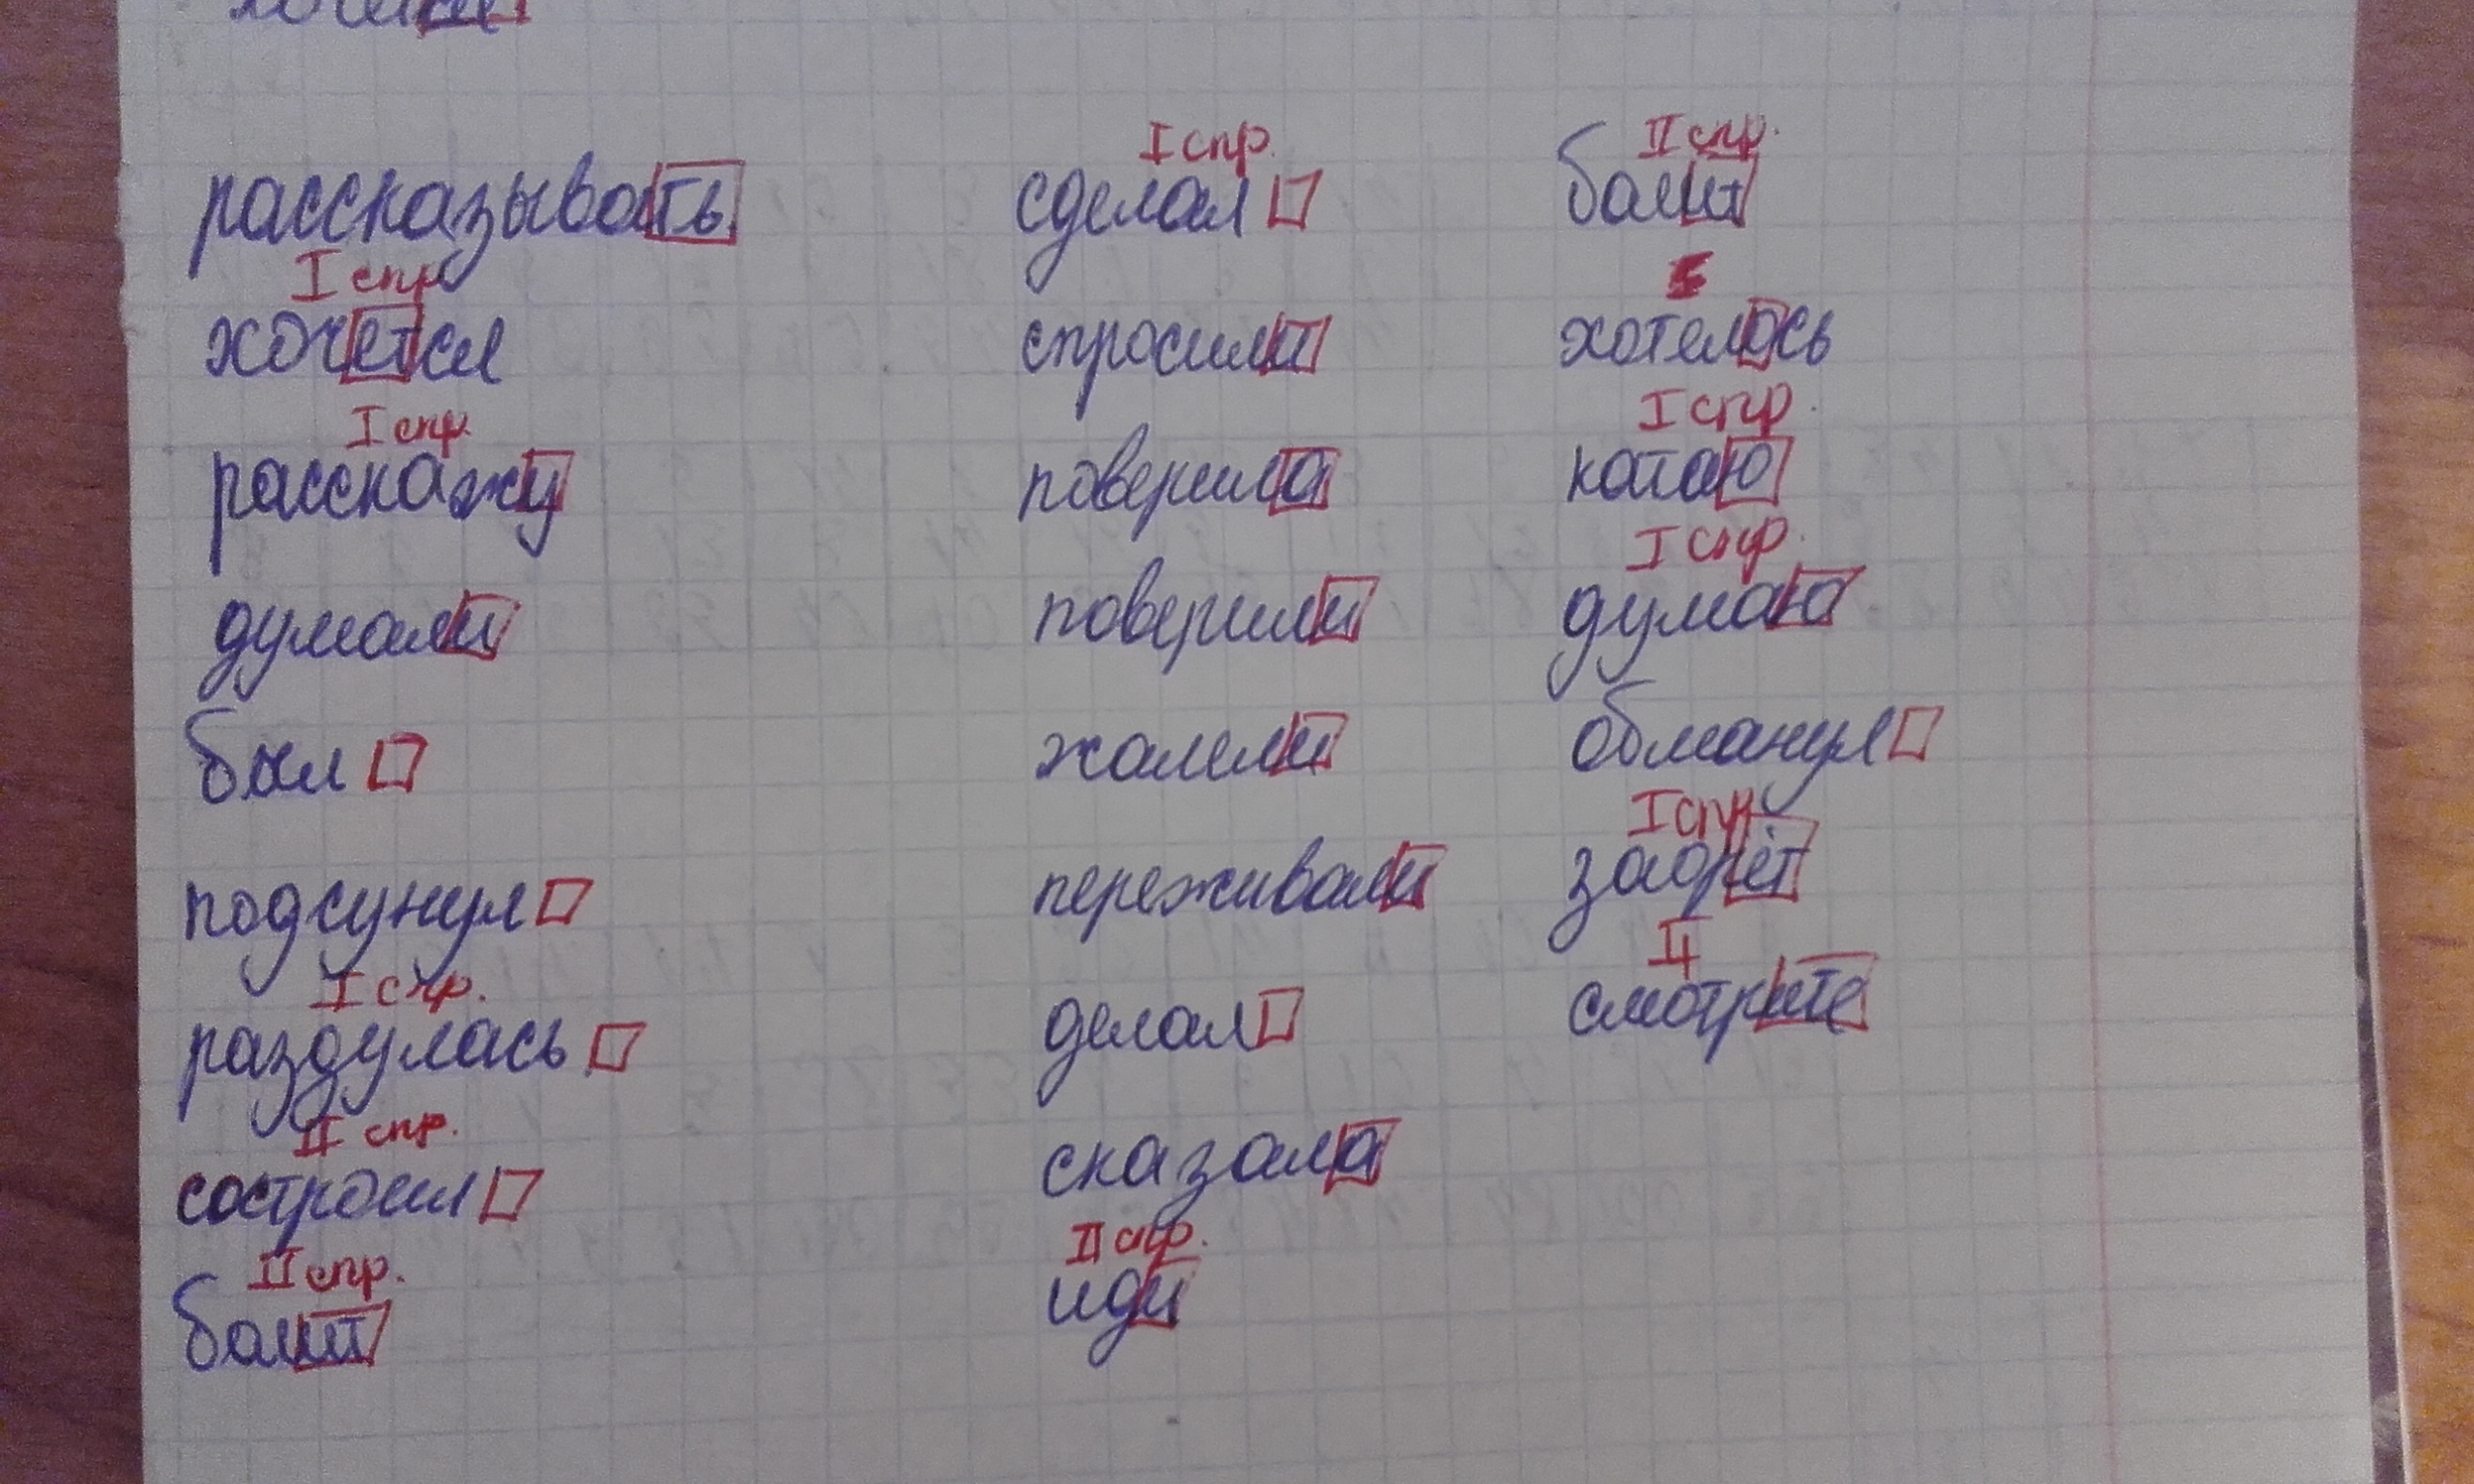 рассказывать
I спр
хочется
I спр.
расскажу
думали
был
подсунул
I спр.
раздулась
II спр.
состроил
II спр.
болит
I спр.
сделал
спросили
поверила
поверили
жалели
переживали
делал
сказала
II спр.
иди
II спр.
болит
хотелось
I спр.
катаю
I спр.
думаю
обманул
I спр
заорёт
II
смотрите